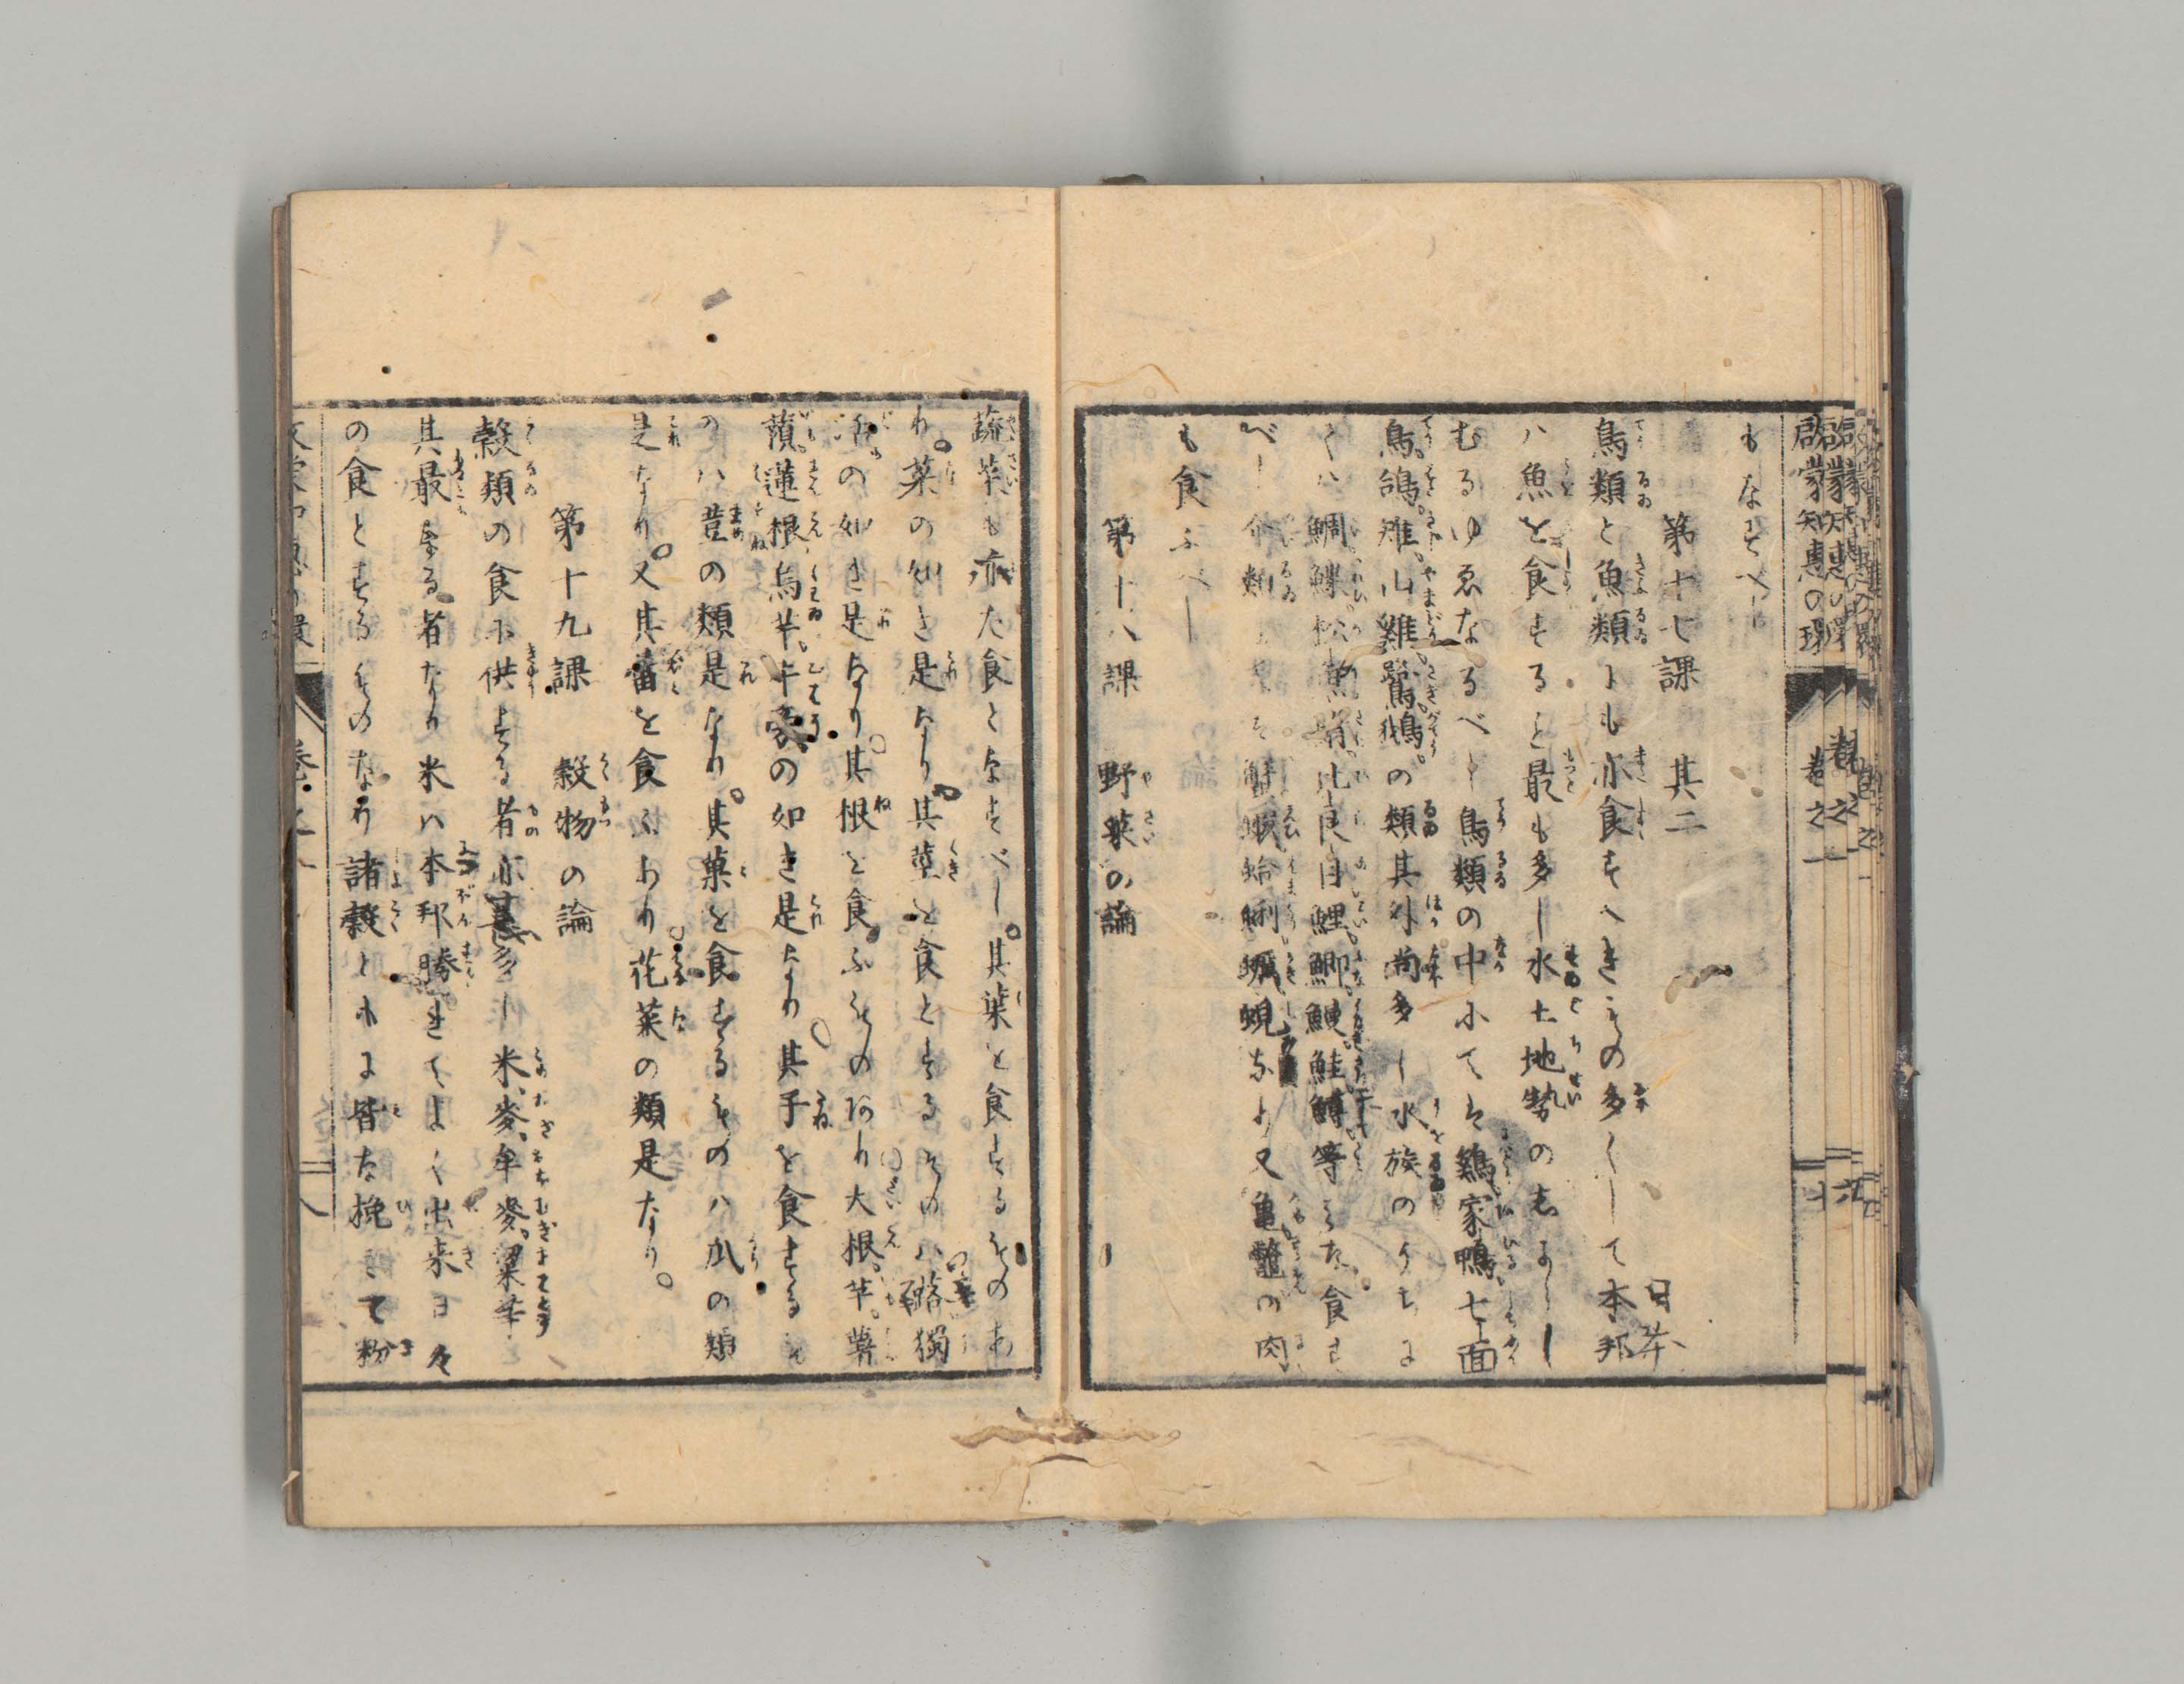 啓蒙知恵の環 巻之一
もなすべし
第十七課 其二
鳥類と魚類にも亦食すべきもの多くして本邦
日本
ハ魚を食するこ最も多し水土地勢の志からし
むるゆゑなるべし鳥類の中にてハ鶏家鴨七面
鳥鴿雉山雞鵞の類其外尚多し水族のうちに
てハ鯛鰈松魚比良目鯉鯽鰻鮭鱒等みな食す
べし介類ハ蛤蜊蠣蜆なり又亀鼈の肉
も食ふべし
第十八課 野菜の論
蔬菜も亦た食となすべし。其葉を食するものあ
り。菜の如き是なり其茎を食とするものハ独
活の如き是なり。其根を食ふものあり大根。芋。薯
蕷。蓮根。烏芋。牛蒡の如き是なり其子を食するも
のハ荳の類是なり。其菓を食するものハ瓜の類
是なり。又其蕾を食ふあり花菜の類是なり。
第十九課 穀物の論
穀類の食に供する者亦甚多し米、麥、牟麥、
其最なる者なり米ハ本邦勝れてよく出来日々
の食とするものなり諸穀ともに皆な挽きて粉